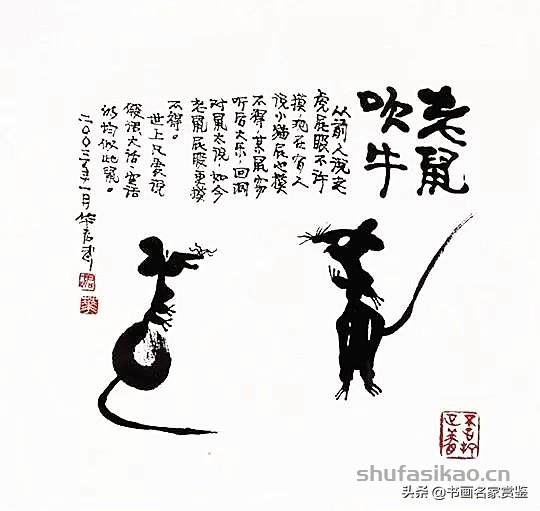 老鼠
吹牛
从前人说老
虎屁股不许
摸，现在有人
说小猫屁也摸
不得，某鼠
听后大乐，回洞
对鼠太说，如今
老鼠屁股更摸
不得。
世上凡爱说
假话大话，空话
的均似此鼠。
二〇〇三年一月华君武
shufasikao.cn
头条 @书画名家赏鉴